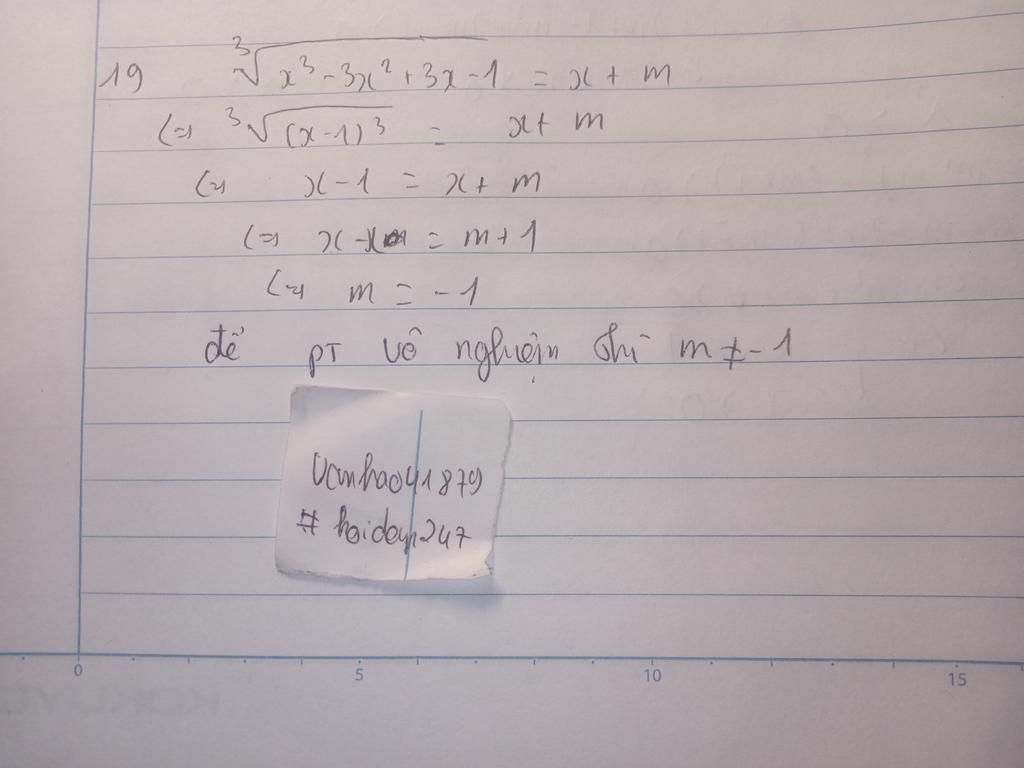 19 ∛(x³ - 3x² + 3x - 1) = x + m
(=) ∛((x-1)³) = x + m
(=) x - 1 = x + m
(=) x - x = m + 1
(=) m = -1
để pt vô nghiệm thì m ≠ -1
Vanhao41879
# hoidap247
0 5 10 15
KOKUYO